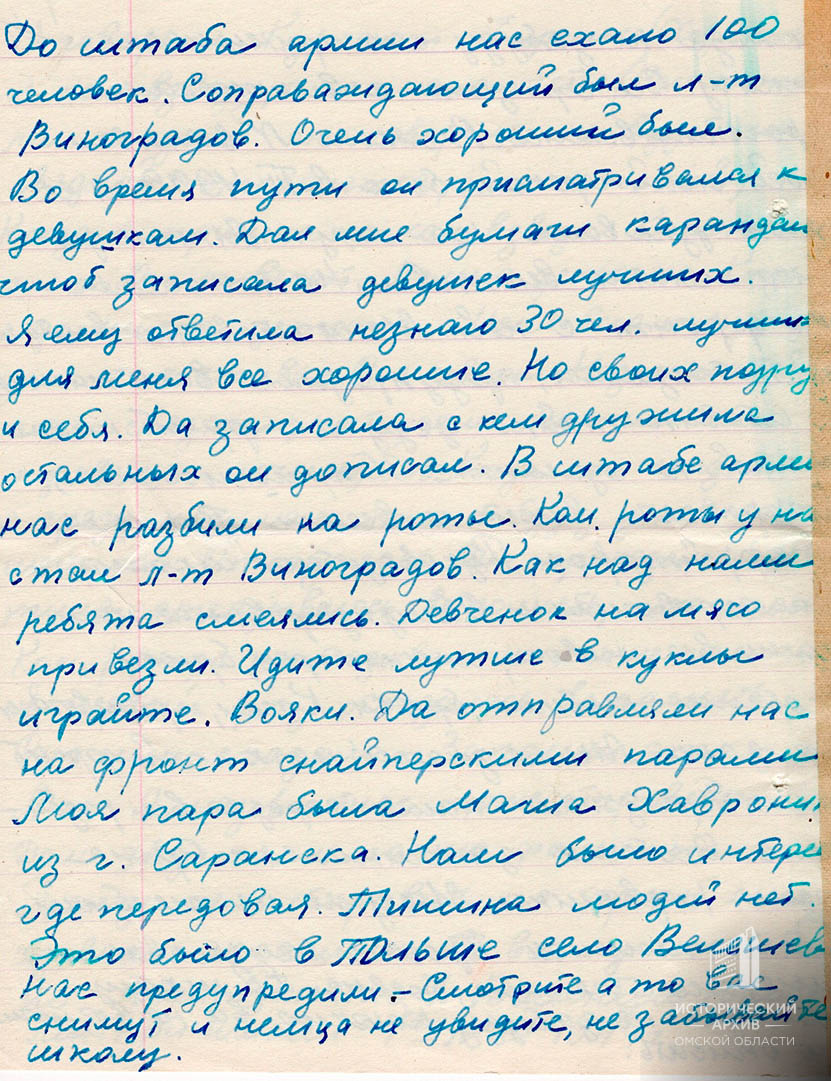 До штаба армии нас ехало 100
человек. Соправаждающий был л-т
Виноградов. Очень хороший был.
Во время пути он присматривался к
девушкам. Дал мне бумаги каранда
чтоб записала девушек лучших.
Я ему ответила незнаю 30 чел. лучши
для меня все хорошие. Но своих подру
и себя. Да записала с кем дружила
остальных он дописал. В штабе арми
нас разбили на роты. Ком. роты у на
стал л-т Виноградов. Как над нами
ребята смеялись. Девченок на мясо
привезли. Идите лутше в куклы
играйте. Вояки. Да отправляли нас
на фронт снайперскими парами
Моя пара была Маша Хаврони
из г. Саранска. Нам было интере
где передовая. Тишина людей нет.
Это было в Польше село
нас предупредили – Смотрите а то вас
снимут и немца не увидите, не забывайте
школу.
ИСТОРИЧЕСКИЙ
АРХИВ
ОМСКОЙ ОБЛАСТИ